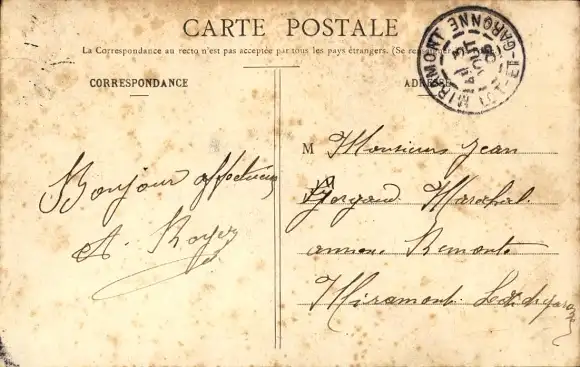 CARTE POSTALE
La Correspondance au recto n'est pas acceptée par tous les pays étrangers. (Se
CORRESPONDANCE
ADRESSE
MIRAMONT
LOT-ET-GARONNE
Bonjour affectueux
A. Royer
M Monsieur Jean
Marechal
annexe Remonte
Miramont Lot et gar